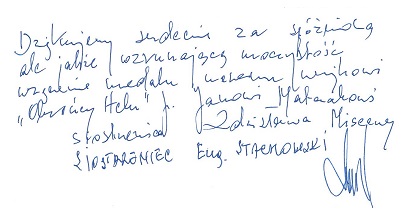 Dziękujemy serdecznie za spóźnioną
ale jakże wzruszającą uroczystość
wręczenia medalu naszemu wujkowi
"Obrońcy Helu" p. Janowi
siostrzenica Zdzisława
SIOSTRZENIEC Eug. STACHOWSKI